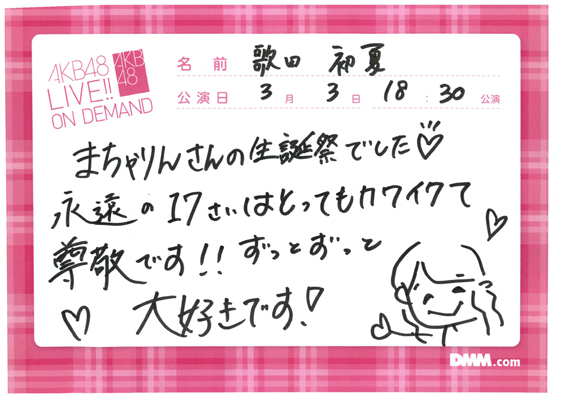 AKB48
LIVE!!
ON DEMAND
AKB
48
名前 歌田 初夏
公演日 3月 3日 18:30公演
まちゃりんさんの生誕祭でした♡
永遠の17さいはとってもカワイクて
尊敬です!! ずっとずっと
大好きです!
DMM.com